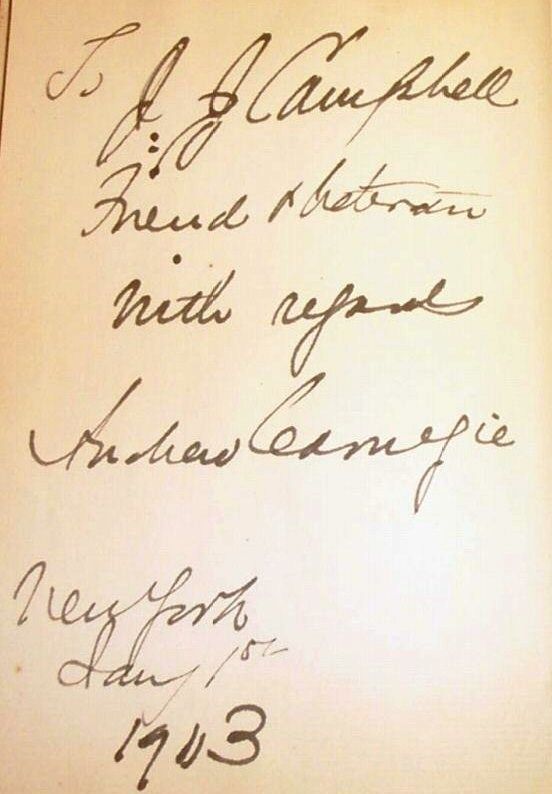 To
J. J. Campbell
Friend & Veteran
With regards
Andrew Carnegie
New York
Jany 1st
1903